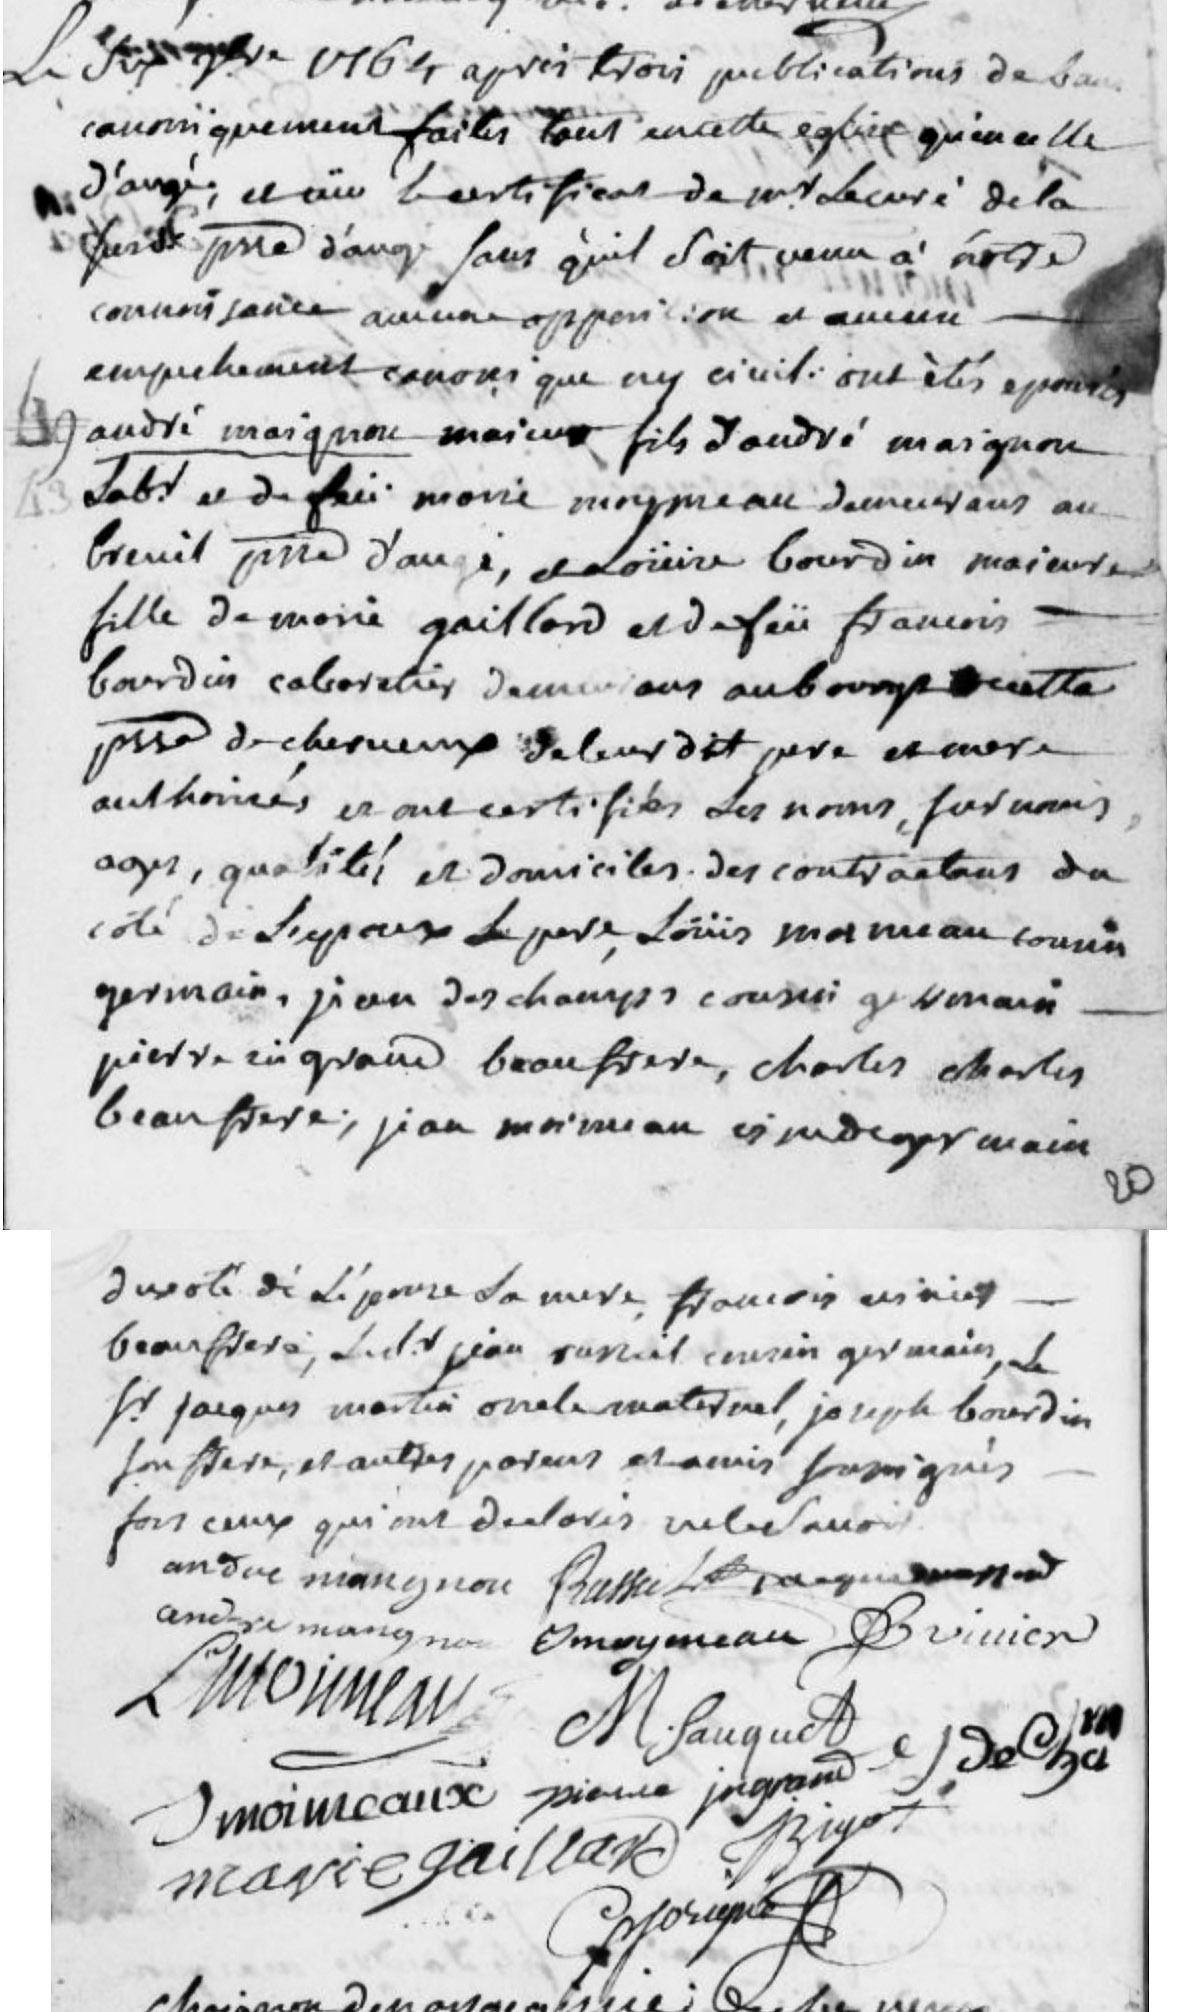 Le six 9bre 1764 après trois publications de ban
canoniquement faites tant encette eglise qu'en celle
d'augé, et eüe le certificat de mr Lecuré de la
susd psse d'augé sans qu'il soit venu a notre
connoissance aucune opposition et aucun
empechement canonique ny civil: ont étés epousés
andré maignou maieur fils d'andré maignou
Labr et de feüe marie moyneau demeurans au
breuil psse d'augé, et Loüise bourdin maieure
fille de marie gaillard et de feü francois
bourdin cabaretier demeurans au bourg de cette
psse de cherveux de leur dit pere et mere
authorisés et ont certifiés Les noms, surnoms,
ages, qualités et domiciles des contractans du
côté de L'epoux Le pere, Löüis moineau cousin
germain, jean deschamps cousin germain
pierre ingrand beaufrere, charles charles
beaufrere, jean moineau germain
20
du coté de L'épouse La mere, francois
beaufrere, Ledt jean russeil cousin germain, Le
sr jacques martin oncle maternel, joseph bourdin
son frere, et autres parens et amis soussignés
fors ceux qui ont declarés ne le savoir
andre mangnou Russeil
andre mangnou moyneau vinier
L moineau
M. Sauquet
J moineaux pierre jngrand J deCham
marie gaillard Bigot